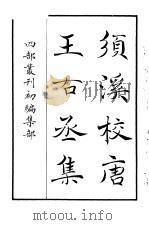 須溪校唐
王右丞集
四部叢刊初編集部
mtoou.info
mtoou.info